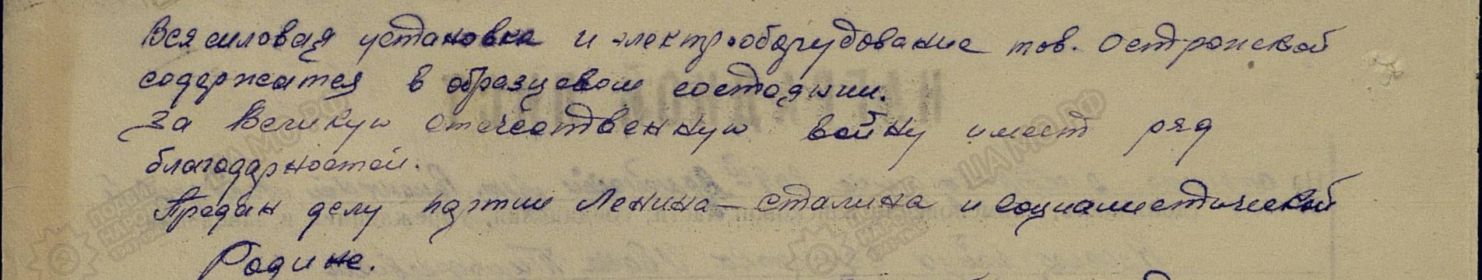 Вся силовая установка и электрооборудование тов. Острожской
содержатся в образцовом состоянии.
За Великую отечественную войну имеет ряд
благодарностей.
Предан делу партии Ленина-Сталина и социалистической
Родине.